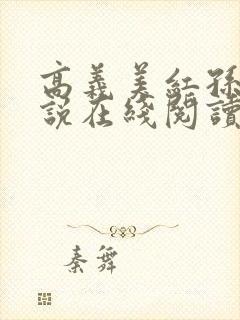 高義美紅孫
說在綫閱讀
秦舞